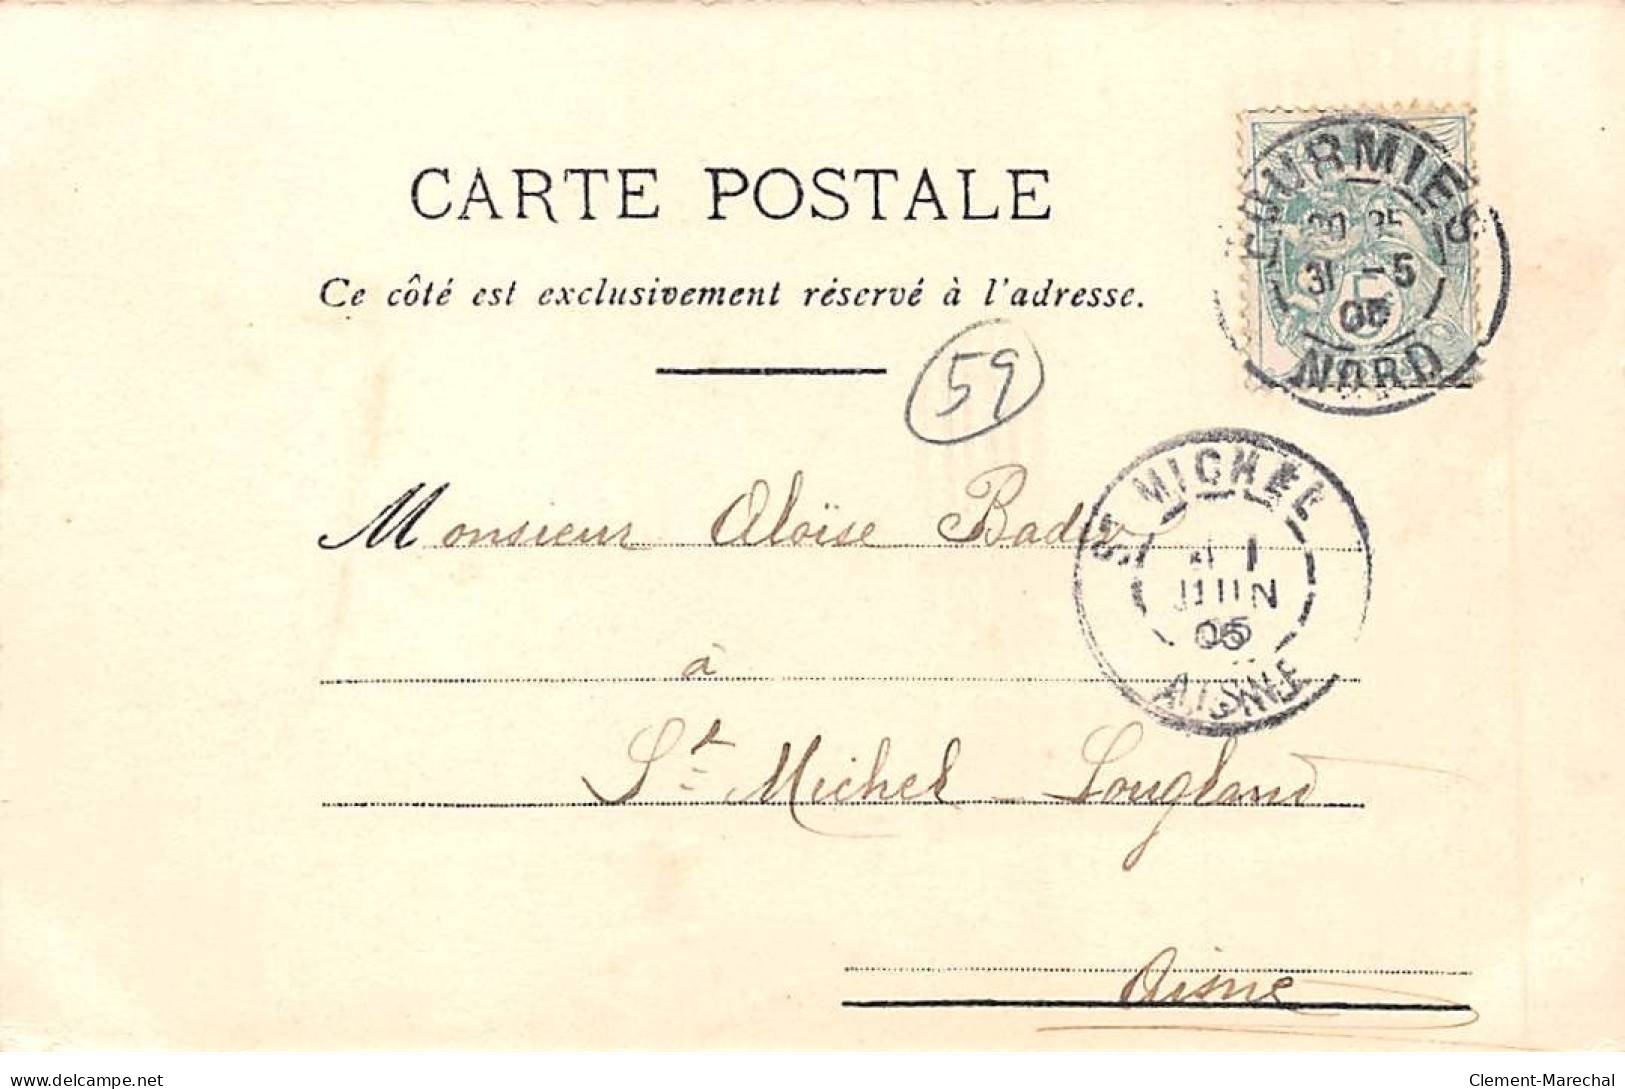 CARTE POSTALE
Ce côté est exclusivement réservé à l'adresse.
FOURMIES
31 -5
05
NORD
59
ST MICHEL
1
JUIN
05
AISNE
Monsieur Aloïse
à
St Michel Sougland
Aisne
delcampe.net
Clement-Marechal